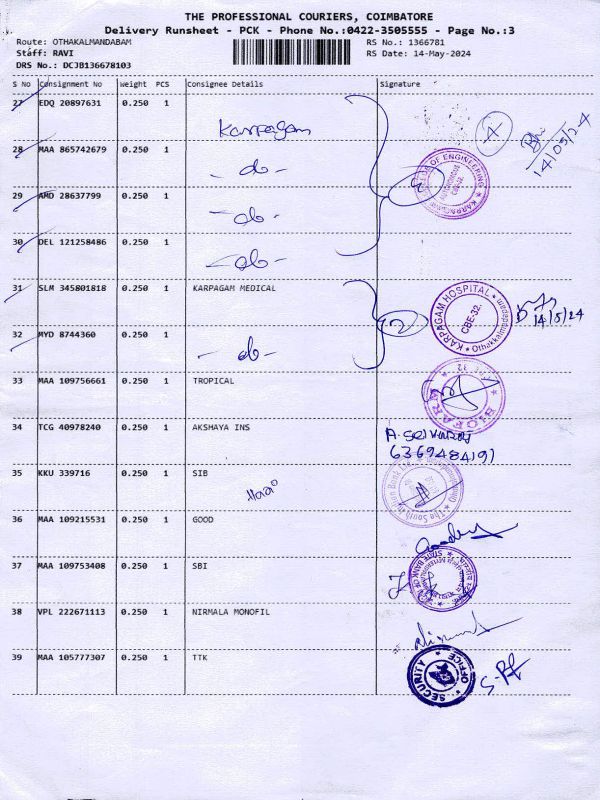 THE PROFESSIONAL COURIERS, COIMBATORE
Delivery Runsheet - PCK - Phone No.:0422-3505555 - Page No.:3
Route: OTHAKALMANDABAM
RS No.: 1366781
Staff: RAVI
RS Date: 14-May-2024
DRS No.: DCJB136678103
S No Consignment No Weight PCS Consignee Details Signature
27 EDQ 20897631 0.250 1 Karpagam
4
14/05/24
28 MAA 865742679 0.250 1 -do-
OF ENGINEERING
AUTONOMOUS
CBE-32.
KARPAGAM
29 AMD 28637799 0.250 1 -do-
30 DEL 121258486 0.250 1 -do-
31 SLM 345801818 0.250 1 KARPAGAM MEDICAL
KARPAGAM HOSPITAL
CBE-32.
Othakkalmandapam
14/5/24
2
32 MYD 8744360 0.250 1 -do-
33 MAA 109756661 0.250 1 TROPICAL
34 TCG 40978240 0.250 1 AKSHAYA INS
6369484191
35 KKU 339716 0.250 1 SIB
The South Indian Bank
36 MAA 109215531 0.250 1 GOOD
37 MAA 109753408 0.250 1 SBI
STATE BANK OF
38 VPL 222671113 0.250 1 NIRMALA MONOFIL
39 MAA 105777307 0.250 1 TTK
SECURITY OFFICE